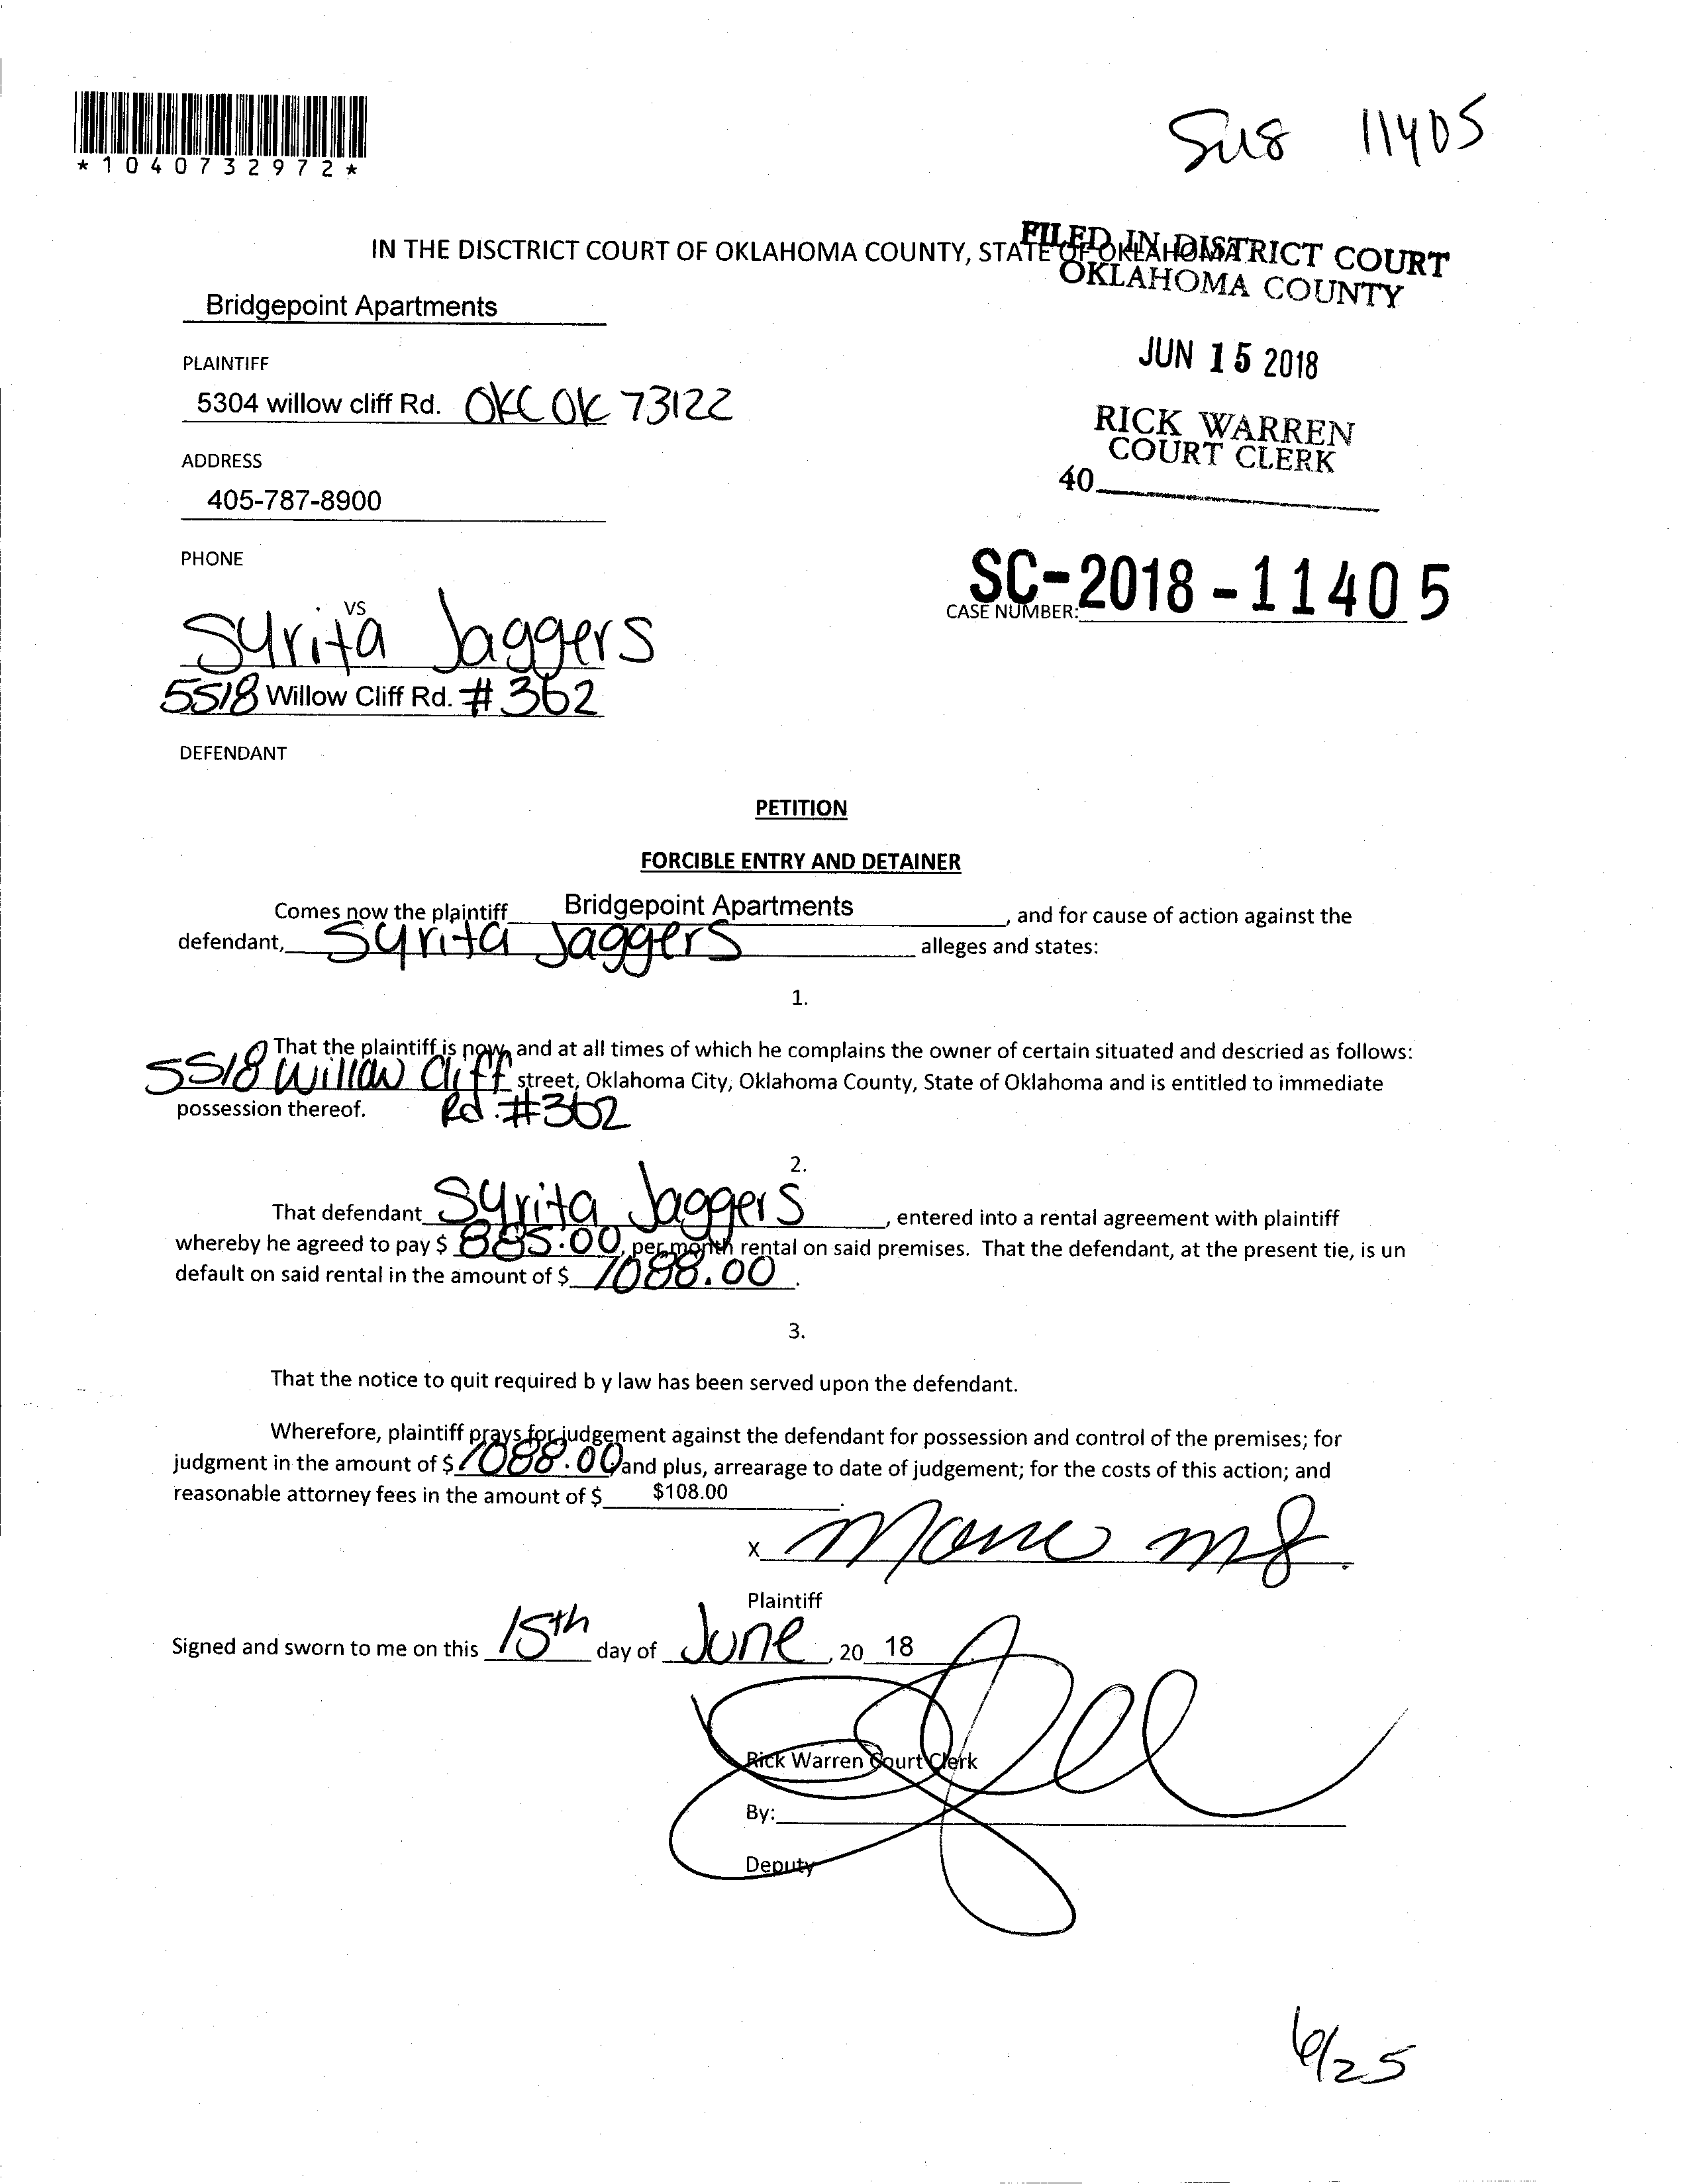 11405
*1040732972*
FILED IN DISTRICT COURT
OKLAHOMA COUNTY
IN THE DISCTRICT COURT OF OKLAHOMA COUNTY, STATE OF OKLAHOMA
Bridgepoint Apartments
PLAINTIFF
JUN 15 2018
5304 willow cliff Rd. OKC OK 73122
RICK WARREN
COURT CLERK
ADDRESS
40
405-787-8900
PHONE
SC-2018-11405
CASE NUMBER:
VS
Syrita Jaggers
5518 Willow Cliff Rd. #362
DEFENDANT
PETITION
FORCIBLE ENTRY AND DETAINER
Comes now the plaintiff Bridgepoint Apartments, and for cause of action against the
defendant, Syrita Jaggers alleges and states:
1.
That the plaintiff is now, and at all times of which he complains the owner of certain situated and descried as follows:
5518 Willow Cliff street, Oklahoma City, Oklahoma County, State of Oklahoma and is entitled to immediate
possession thereof. Rd. #362
2.
That defendant Syrita Jaggers, entered into a rental agreement with plaintiff
whereby he agreed to pay $ 885.00, per month rental on said premises. That the defendant, at the present tie, is un
default on said rental in the amount of $ 1088.00.
3.
That the notice to quit required b y law has been served upon the defendant.
Wherefore, plaintiff prays for judgement against the defendant for possession and control of the premises; for
judgment in the amount of $ 1088.00 and plus, arrearage to date of judgement; for the costs of this action; and
reasonable attorney fees in the amount of $ $108.00.
X
Plaintiff
Signed and sworn to me on this 15th day of June, 20 18
Rick Warren Court Clerk
By:
Deputy
6/25